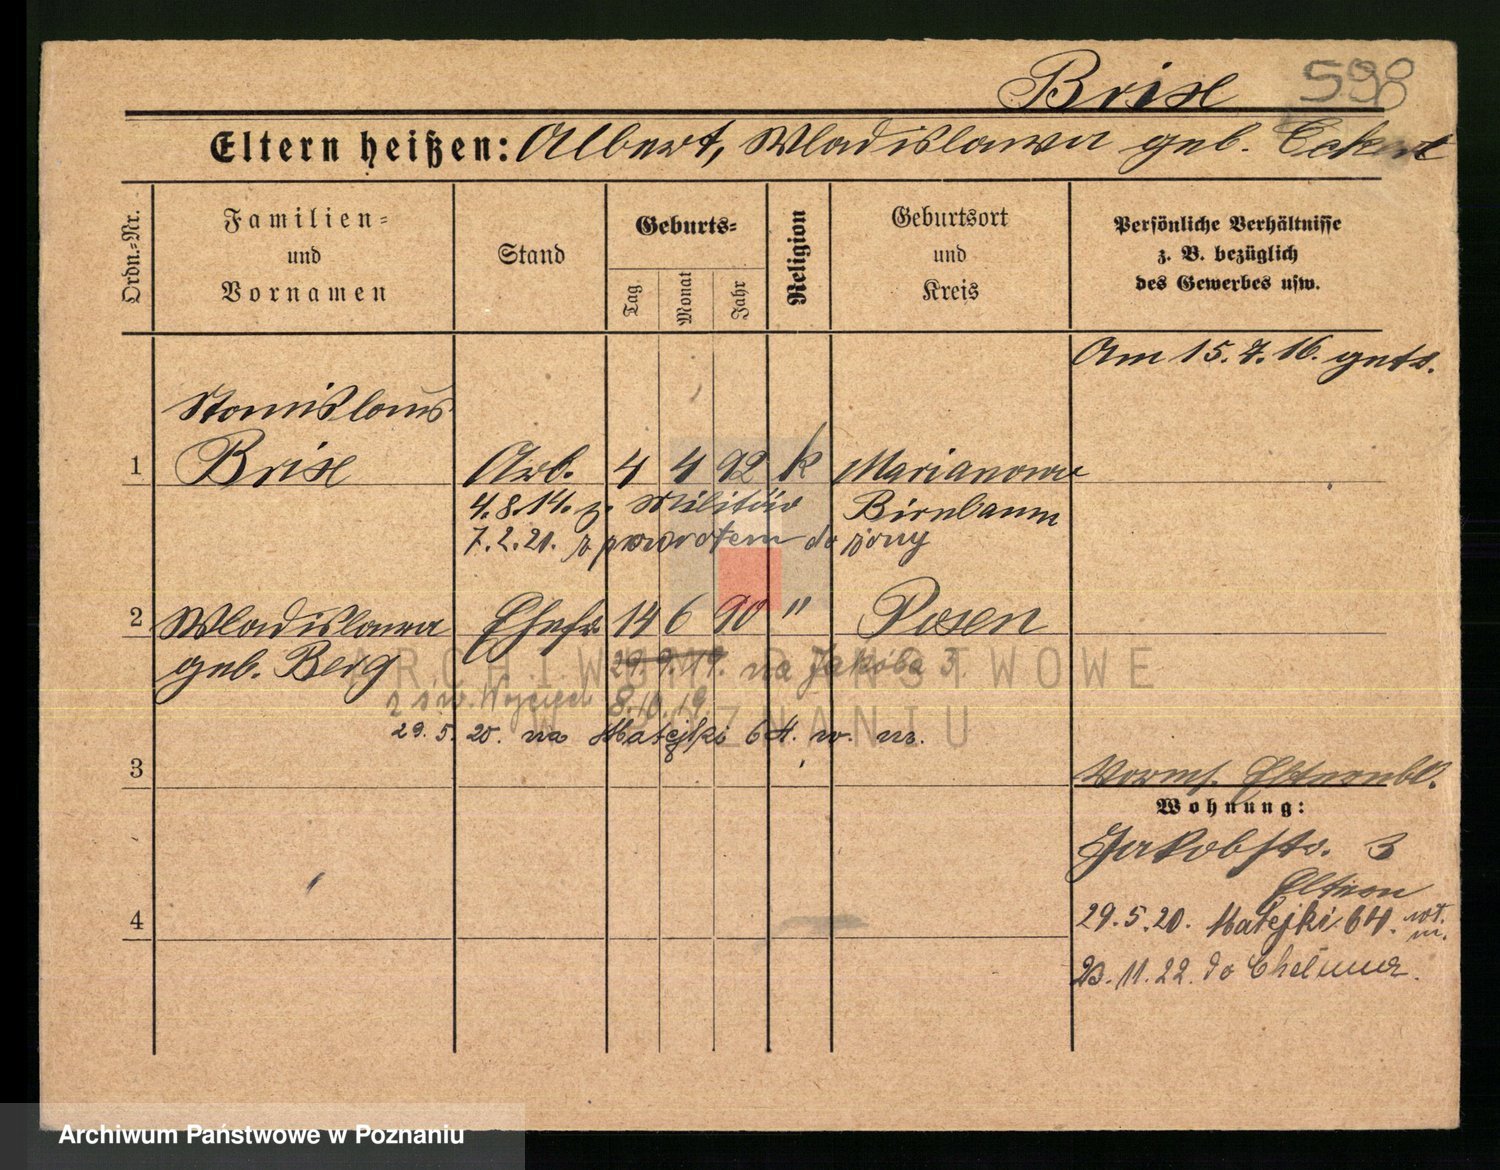 Brix 598
Eltern heißen: Albert, Wladislawa geb. Eckert
Ordn.-Nr.
Familien-
und
Vornamen
Stand
Geburts-
Tag
Monat
Jahr
Religion
Geburtsort
und
Kreis
Persönliche Verhältnisse
z. B. bezüglich
des Gewerbes usw.
Am 15.7.16. getr.
Stanislaus
1 Brix Arb. 4 4 92 k Marianowo
4.8.14. z. Militär Birnbaum
7.2.20. z powrotem do żony
2 Wladislawa Ehefr. 14 6 90 " Posen
geb. Berg 29.9.19. na Jakóba 3
z św. Wojciech 8.10.19.
29.5.20. na Matejki 64. w. nr.
3
Wohnung:
Jakobstr. 3
Eltern
29.5.20. Matejki 64.
23.11.22. do
4
ARCHIWUM PAŃSTWOWE
W POZNANIU
Archiwum Państwowe w Poznaniu